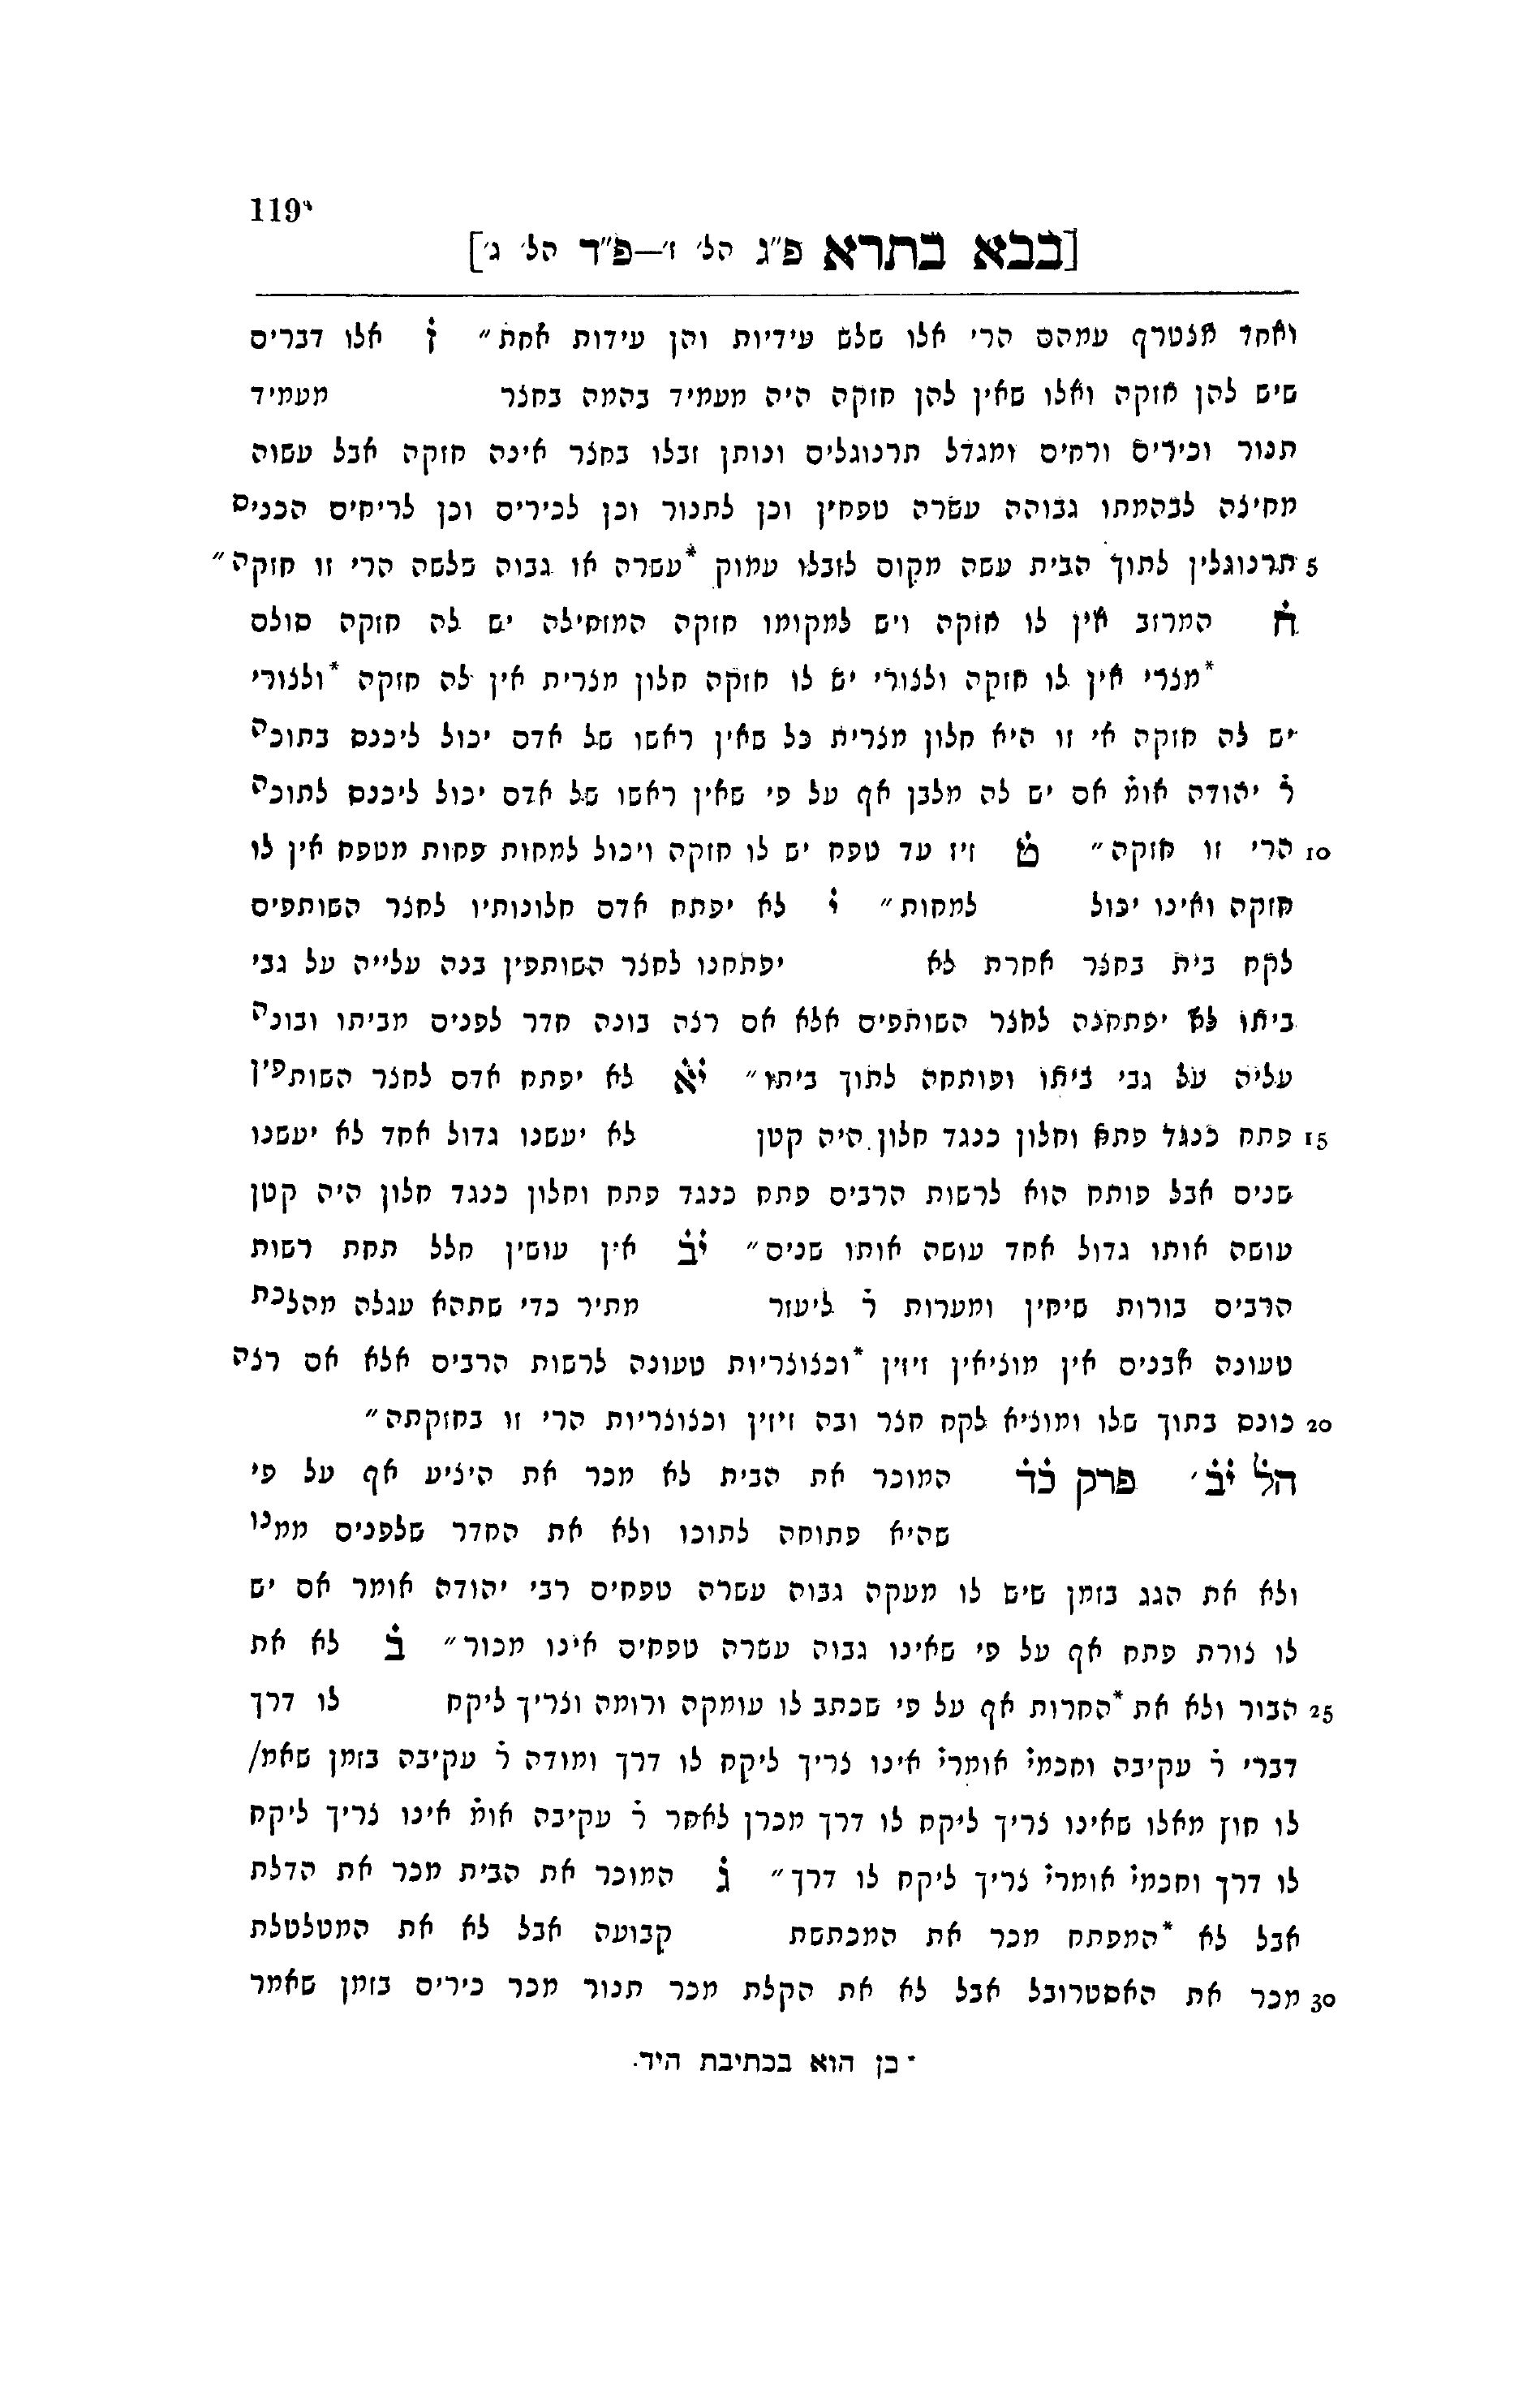 119ᵃ
[בבא בתרא פ״ג הל׳ ז׳—פ״ד הל׳ ג׳]
ואחד מצטרף עמהם הרי אלו שלש עידיות והן עידות אחת״ ז אלו דברים
שיש להן חזקה ואלו שאין להן חזקה היה מעמיד בהמה בחצר מעמיד
תנור וכירים ורחים ומגדל תרנוגלים ונותן זבלו בחצר אינה חזקה אבל עשוה
מחיצה לבהמתו גבוהה עשרה טפחין וכן לתנור וכן לכירים וכן לריחים הכנים
5 תרנוגלין לתוך הבית עשה מקום לזבלו עמוק *עשרה או גבוה שלשה הרי זו חזקה״
ח המרזב אין לו חזקה ויש למקומו חזקה המזחילה יש לה חזקה סולם
*מצרי אין לו חזקה ולצורי יש לו חזקה חלון מצרית אין לה חזקה *ולצורי
יש לה חזקה אי זו היא חלון מצרית כל שאין ראשו של אדם יכול ליכנס בתוכה
ר̇ יהודה אומ̇ אם יש לה מלבן אף על פי שאין ראשו של אדם יכול ליכנס לתוכה
10 הרי זו חזקה״ ט זיז עד טפח יש לו חזקה ויכול למחות פחות מטפח אין לו
חזקה ואינו יכול למחות״ י לא יפתח אדם חלונותיו לחצר השותפים
לקח בית בחצר אחרת לא יפתחנו לחצר השותפין בנה עלייה על גבי
ביתו לא יפתחנה לחצר השותפים אלא אם רצה בונה חדר לפנים מביתו ובונה
עליה על גבי ביתו ופותחה לתוך ביתו״ יא לא יפתח אדם לחצר השותפין
15 פתח כנגד פתח וחלון כנגד חלון היה קטן לא יעשנו גדול אחד לא יעשנו
שנים אבל פותח הוא לרשות הרבים פתח כנגד פתח וחלון כנגד חלון היה קטן
עושה אותו גדול אחד עושה אותו שנים״ יב אין עושין חלל תחת רשות
הרבים בורות שיחין ומערות ר̇ ליעזר מתיר כדי שתהא עגלה מהלכת
טעונה אבנים אין מוציאין זיזין *וכצוצריות טעונה לרשות הרבים אלא אם רצה
20 כונס בתוך שלו ומוציא לקח חצר ובה זיזין וכצוצריות הרי זו בחזקתה״
הל̇ יב̇׳ פרק כ̇ד̇ המוכר את הבית לא מכר את היציע אף על פי
שהיא פתוחה לתוכו ולא את החדר שלפנים ממנו
ולא את הגג בזמן שיש לו מעקה גבוה עשרה טפחים רבי יהודה אומר אם יש
לו צורת פתח אף על פי שאינו גבוה עשרה טפחים אינו מכור״ ב לא את
25 הבור ולא את *החרות אף על פי שכתב לו עומקה ורומה וצריך ליקח לו דרך
דברי ר̇ עקיבה וחכמי̇ אומרי̇ אינו צריך ליקח לו דרך ומודה ר̇ עקיבה בזמן שאמ/
לו חוץ מאלו שאינו צריך ליקח לו דרך מכרן לאחר ר̇ עקיבה אומ̇ אינו צריך ליקח
לו דרך וחכמי̇ אומרי̇ צריך ליקח לו דרך״ ג המוכר את הבית מכר את הדלת
אבל לא *המפתח מכר את המכתשת קבועה אבל לא את המטלטלת
30 מכר את האסטרובל אבל לא את הקלת מכר תנור מכר כירים בזמן שאמר
* כן הוא בכתיבת היד.